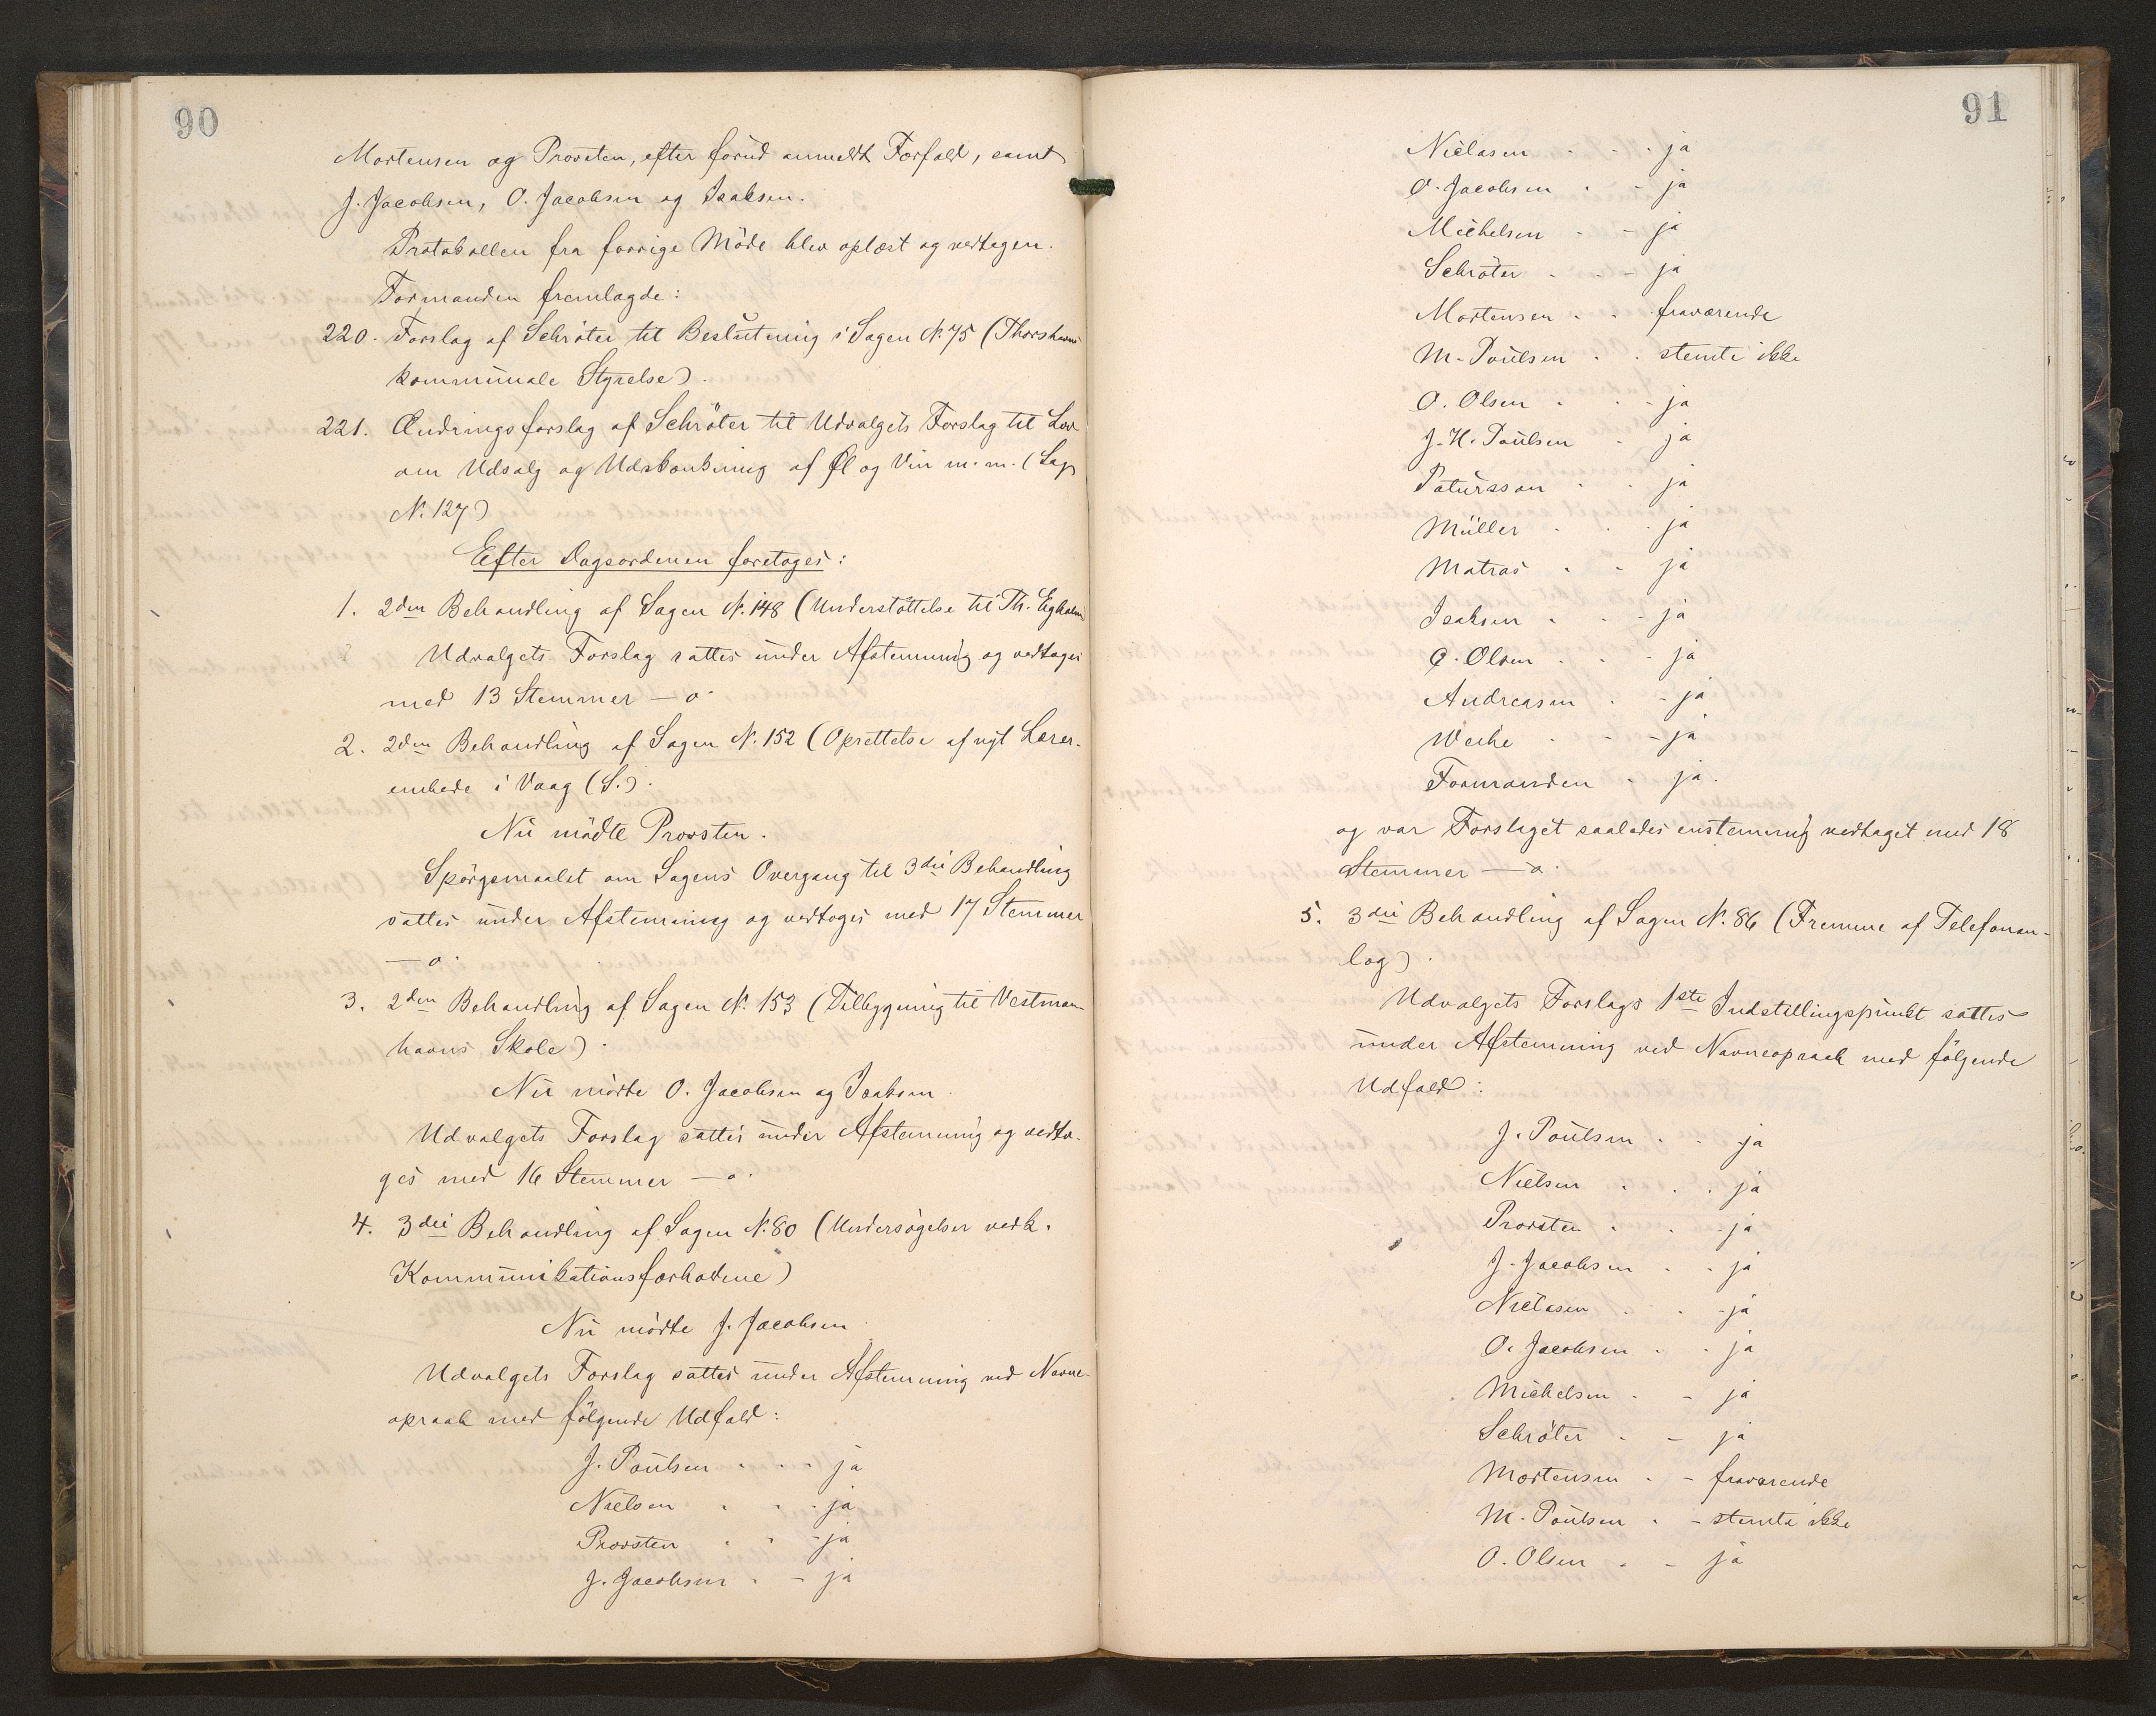 90
Mortensen og Provsten, efter forud anmeldt Forfald, samt
J. Jacobsen, O. Jacobsen og Isaksen.
Protokollen fra forrige Möde blev oplæst og vedtagen.
Formanden fremlagde:
220. Forslag af Schröter til Beslutning i Sagen N. 75 (Thorshavns
kommunale Styrelse).
221. Ændringsforslag af Schröter til Udvalgets Forslag til Lov
om Udsalg og Udskænkning af Øl og Vin m.m. (Sag
N. 127)
Efter Dagsordenen foretoges:
1. 2den Behandling af Sagen N. 148 (Understöttelse til Th. Egholm
Udvalgets Forslag sattes under Afstemning og vedtoges
med 13 Stemmer — o.
2. 2den Behandling af Sagen N. 152 (Oprettelse af nyt Lærer-
embede i Vaag (S.).
Nu mödte Provsten.
Spörgsmaalet om Sagens Overgang til 3die Behandling
sattes under Afstemning og vedtoges med 17 Stemmer
— o.
3. 2den Behandling af Sagen N. 153 (Tilbygning til Vestman-
havns Skole).
Nu mödte O. Jacobsen og Isaksen.
Udvalgets Forslag sattes under Afstemning og vedto-
ges med 16 Stemmer — o.
4. 3die Behandling af Sagen N. 80 (Undersögelser vedk.
Kommunikationsforholdene)
Nu mödte J. Jacobsen
Udvalgets Forslag sattes under Afstemning ved Navne-
opraab med fölgende Udfald:
J. Poulsen - - - ja
Nielsen - - - ja
Provsten - - - ja
J. Jacobsen - - ja
91
Niclasen - - - ja
O. Jacobsen - - ja
Michelsen - - ja
Schröter - - - ja
Mortensen - - fraværende
M. Poulsen - - stemte ikke
O. Olsen - - - ja
J. H. Poulsen - ja
Patursson - - ja
Müller - - - ja
Matras - - ja
Isaksen - - - ja
O. Olsen - - - ja
Andreasen - - ja
Weihe - - - ja
Formanden - ja.
og var Forslaget saaledes enstemmig vedtaget med 18
Stemmer — o.
5. 3die Behandling af Sagen N. 86 (Fremme af Telefonan-
læg).
Udvalgets Forslags 1ste Indstillingspunkt sattes
under Afstemning ved Navneopraab med fölgende
Udfald:
J. Poulsen - - ja
Nielsen - - - ja
Provsten - - - ja
J. Jacobsen - - ja
Niclasen - - - ja
O. Jacobsen - - ja
Michelsen - - ja
Schröter - - ja
Mortensen - - fraværende
M. Poulsen - - stemte ikke
O. Olsen - - ja